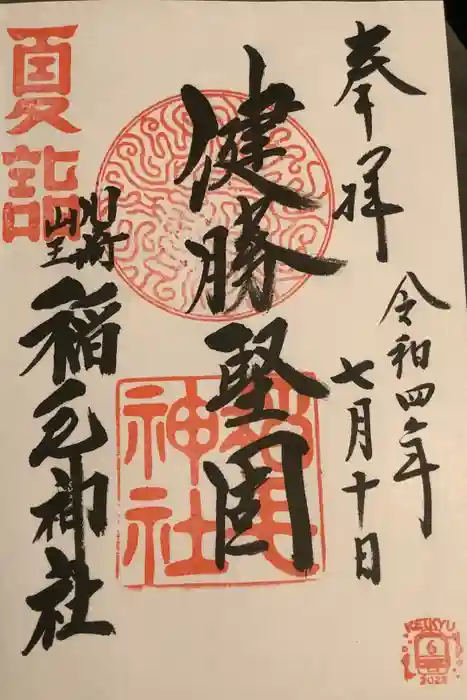 奉拝
令和四年
七月十日
健勝堅固
夏詣
川崎
山王
稲毛神社
稲毛
神社
KEIKYU
6
2022